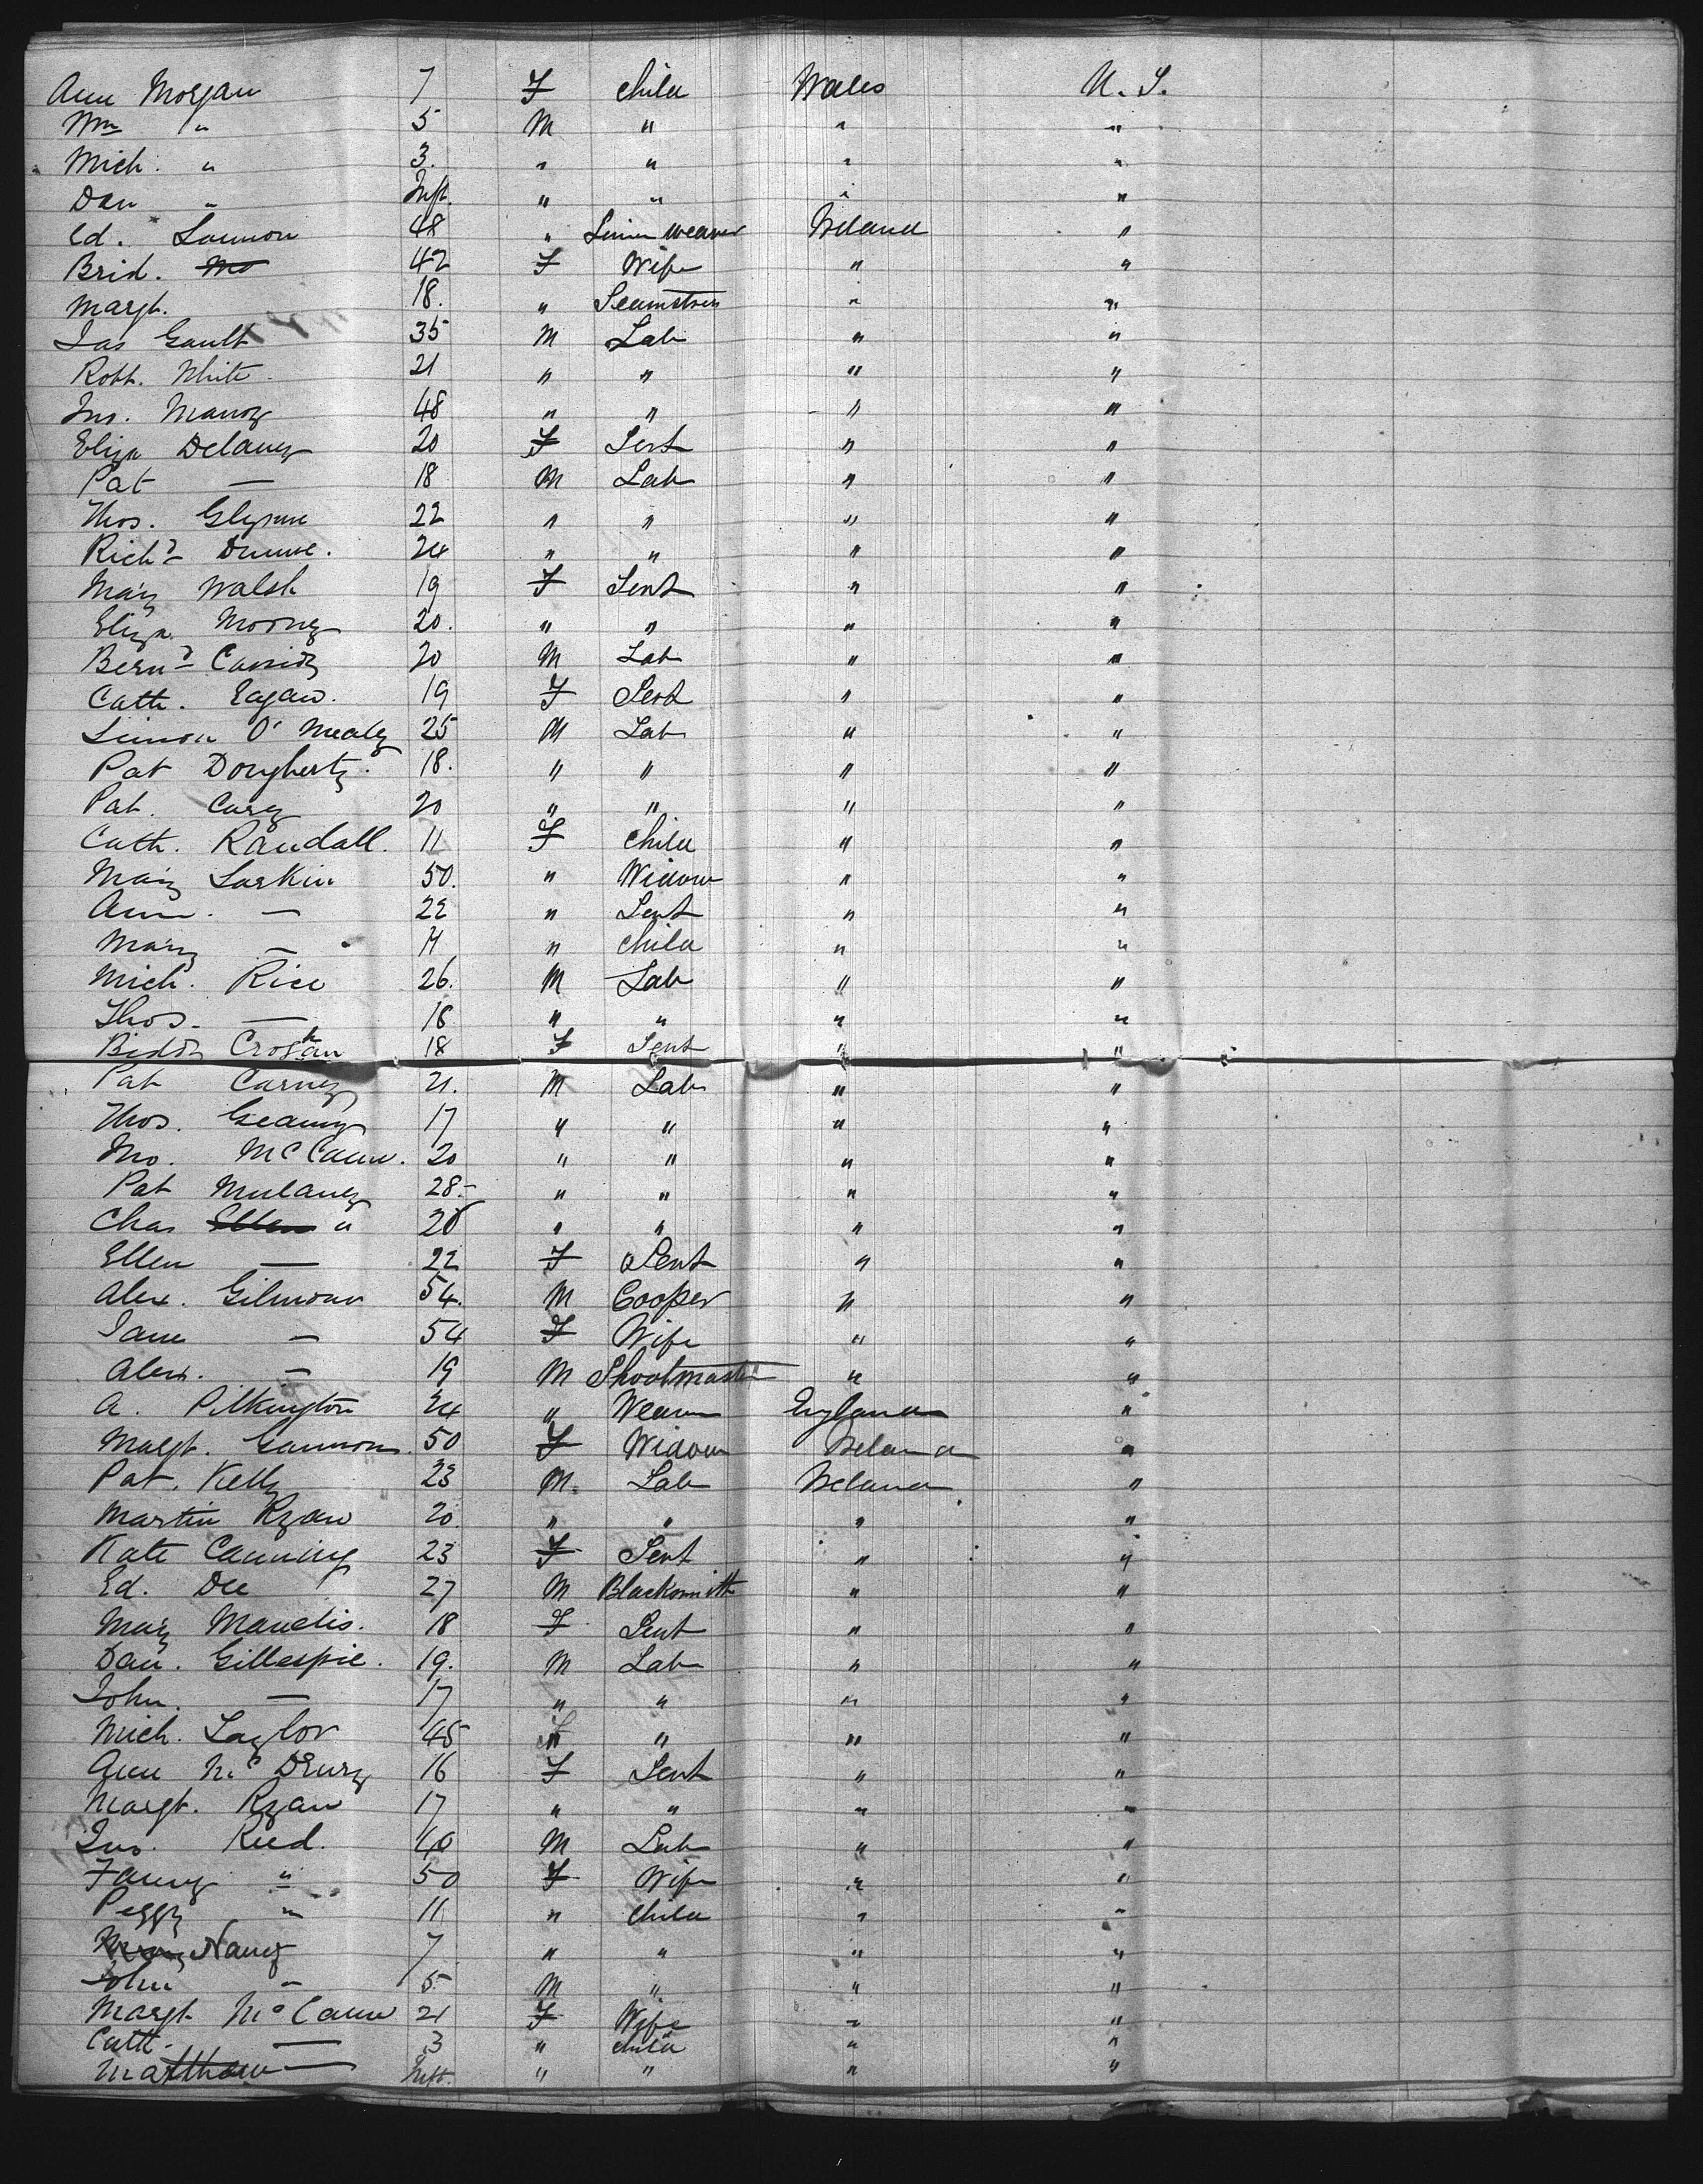 Ann Morgan 7 F Child Wales U. S.
Wm " 5 M " " "
Mich. " 3. " " " "
Dan " Inft. " " " "
Ed. Lannon 48 " Linen weaver Ireland "
Brid. 42 F Wife " "
Margt. 18. " Seamstress " "
Jas Gault 35 M Lab " "
Robt. White 21 " " " "
Jno. 48 " " " "
Eliza Delaney 20 F Servt " "
Pat — 18 M Lab " "
Thos. Glynne 22 " " " "
Richd Dunne. 24 " " " "
Mary Walsh 19 F Servt " "
Eliza Mooney 20. " " " "
Bernd Cassidy 20 M Lab " "
Cath. Eagan. 19 F Servt " "
Simon O' Mealy 25 M Lab " "
Pat Dougherty. 18. " " " "
Pat. Carey 20 " " " "
Cath. Randall. 11 F Child " "
Mary Larkin 50. " Widow " "
Ann. — 22 " Servt " "
Mary — 11 " Child " "
Mich. Rice 26. M Lab " "
Thos. — 18 " " " "
Biddy 18 F Servt " "
Pat Carney 21. M Lab " "
Thos. Geamy 17 " " " "
Jno. McCann. 20 " " " "
Pat Mulaney 28.- " " " "
Chas Ellen " 20 " " " "
Ellen — 22 F Servt " "
Alex. Gilmour 54. M Cooper " "
Jane — 54 F Wife " "
Alex. — 19 M Shoolmaster " "
A. Pilkington 24 " Weaver England "
Margt. Gannon. 50 F Widow Ireland "
Pat. Kelly 23 M. Lab Ireland "
Martin Ryan 20. " " " "
Kate Canning 23 F Servt " "
Ed. Dee 27 M Blacksmith " "
Mary 18 F Servt " "
Dan. Gillespie. 19. M Lab " "
John. — 17 " " " "
Mich. Taylor 45 " " " "
Ann Mc Drury 16 F Servt " "
Margt. Ryan 17 " " " "
Jno. Reed. 40 M Lab " "
Fanny " 50 F Wife " "
Peggy " 11 " Child " "
Nancy 7 " " " "
John " 5 M " " "
Margt. McCann 21 F Wife " "
Cath. — 3 " Child " "
Matthew — Inft. " " " "